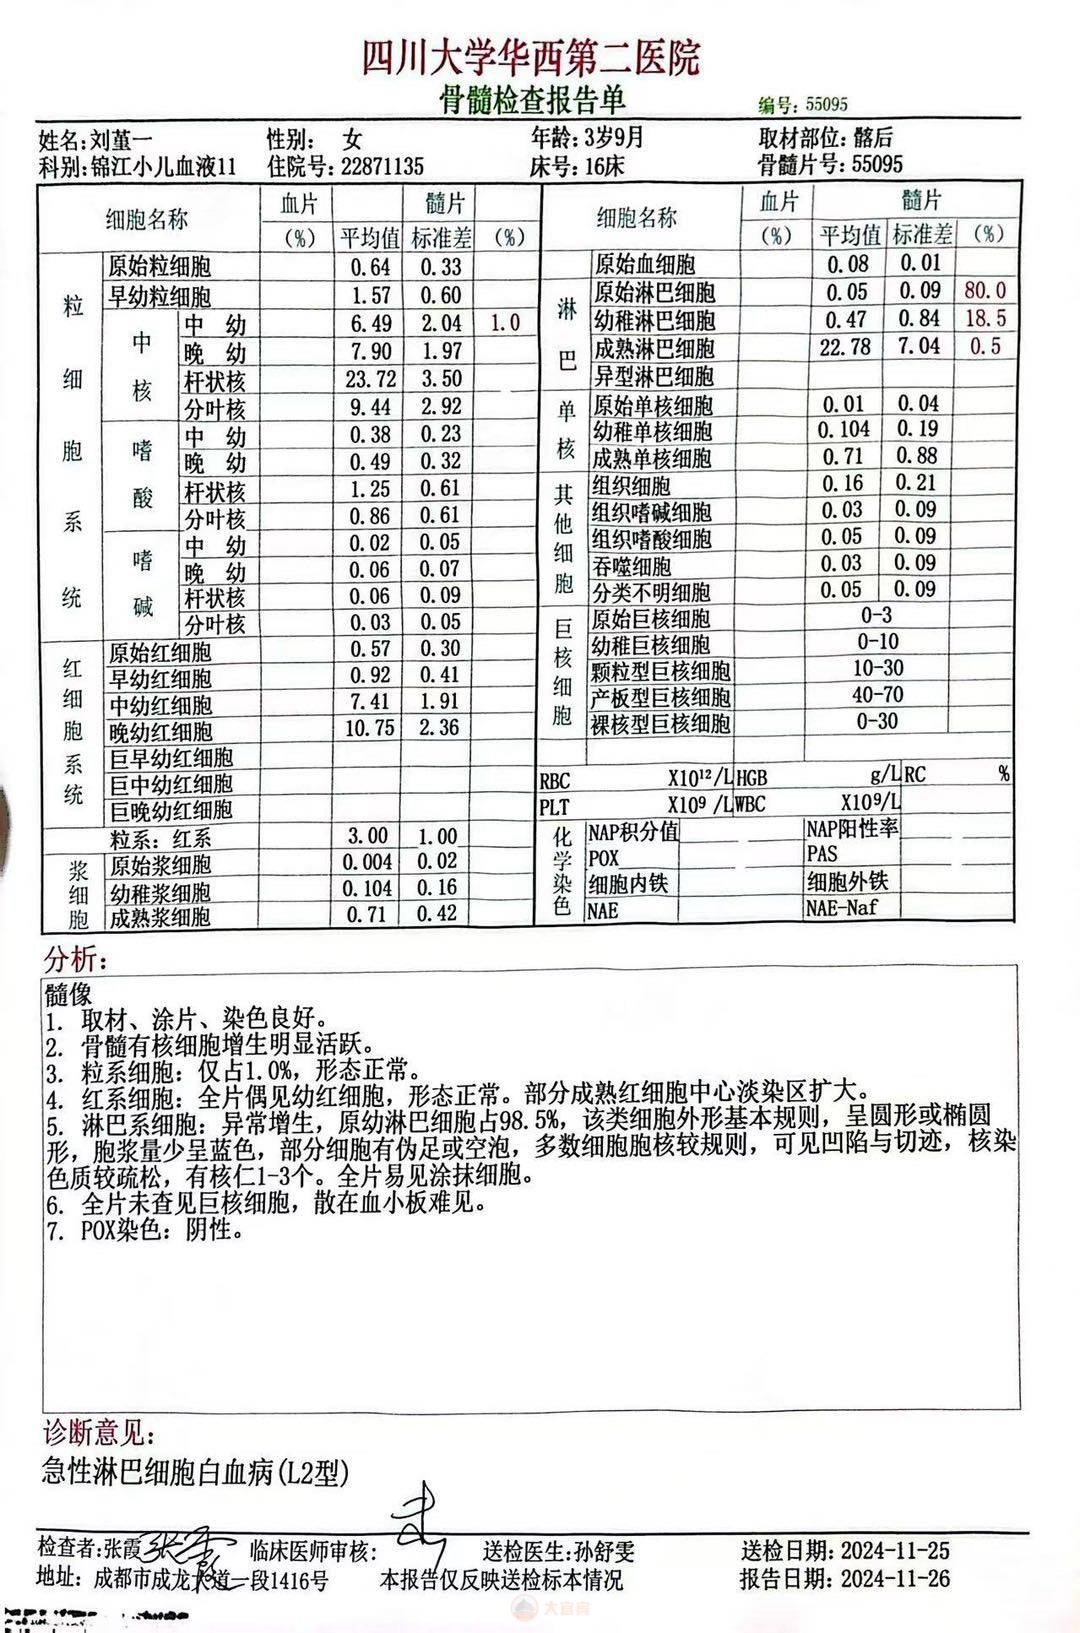 四川大学华西第二医院
骨髓检查报告单
编号: 55095
姓名: 刘堇一 性别: 女 年龄: 3岁9月 取材部位: 髂后
科别: 锦江小儿血液11 住院号: 22871135 床号: 16床 骨髓片号: 55095
细胞名称 血片 髓片 细胞名称 血片 髓片
(%) 平均值 标准差 (%) (%) 平均值 标准差 (%)
粒细胞系统
原始粒细胞 0.64 0.33
早幼粒细胞 1.57 0.60
中核
中 幼 6.49 2.04 1.0
晚 幼 7.90 1.97
杆状核 23.72 3.50
分叶核 9.44 2.92
嗜酸
中 幼 0.38 0.23
晚 幼 0.49 0.32
杆状核 1.25 0.61
分叶核 0.86 0.61
嗜碱
中 幼 0.02 0.05
晚 幼 0.06 0.07
杆状核 0.06 0.09
分叶核 0.03 0.05
红细胞系统
原始红细胞 0.57 0.30
早幼红细胞 0.92 0.41
中幼红细胞 7.41 1.91
晚幼红细胞 10.75 2.36
巨早幼红细胞
巨中幼红细胞
巨晚幼红细胞
粒系: 红系 3.00 1.00
浆细胞
原始浆细胞 0.004 0.02
幼稚浆细胞 0.104 0.16
成熟浆细胞 0.71 0.42
原始血细胞 0.08 0.01
淋巴
原始淋巴细胞 0.05 0.09 80.0
幼稚淋巴细胞 0.47 0.84 18.5
成熟淋巴细胞 22.78 7.04 0.5
异型淋巴细胞
单核
原始单核细胞 0.01 0.04
幼稚单核细胞 0.104 0.19
成熟单核细胞 0.71 0.88
其他细胞
组织细胞 0.16 0.21
组织嗜碱细胞 0.03 0.09
组织嗜酸细胞 0.05 0.09
吞噬细胞 0.03 0.09
分类不明细胞 0.05 0.09
巨核细胞
原始巨核细胞 0-3
幼稚巨核细胞 0-10
颗粒型巨核细胞 10-30
产板型巨核细胞 40-70
裸核型巨核细胞 0-30
RBC X10¹²/L HGB g/L RC %
PLT X10⁹ /L WBC X10⁹/L
化学染色
NAP积分值 NAP阳性率
POX PAS
细胞内铁 细胞外铁
NAE NAE-Naf
分析:
髓像
1. 取材、涂片、染色良好。
2. 骨髓有核细胞增生明显活跃。
3. 粒系细胞: 仅占1.0%, 形态正常。
4. 红系细胞: 全片偶见幼红细胞, 形态正常。部分成熟红细胞中心淡染区扩大。
5. 淋巴系细胞: 异常增生, 原幼淋巴细胞占98.5%, 该类细胞外形基本规则, 呈圆形或椭圆
形, 胞浆量少呈蓝色, 部分细胞有伪足或空泡, 多数细胞胞核较规则, 可见凹陷与切迹, 核染
色质较疏松, 有核仁1-3个。全片易见涂抹细胞。
6. 全片未查见巨核细胞, 散在血小板难见。
7. POX染色: 阴性。
诊断意见:
急性淋巴细胞白血病(L2型)
检查者: 张霞 张霞 临床医师审核: 送检医生: 孙舒雯 送检日期: 2024-11-25
地址: 成都市成龙大道一段1416号 本报告仅反映送检标本情况 报告日期: 2024-11-26